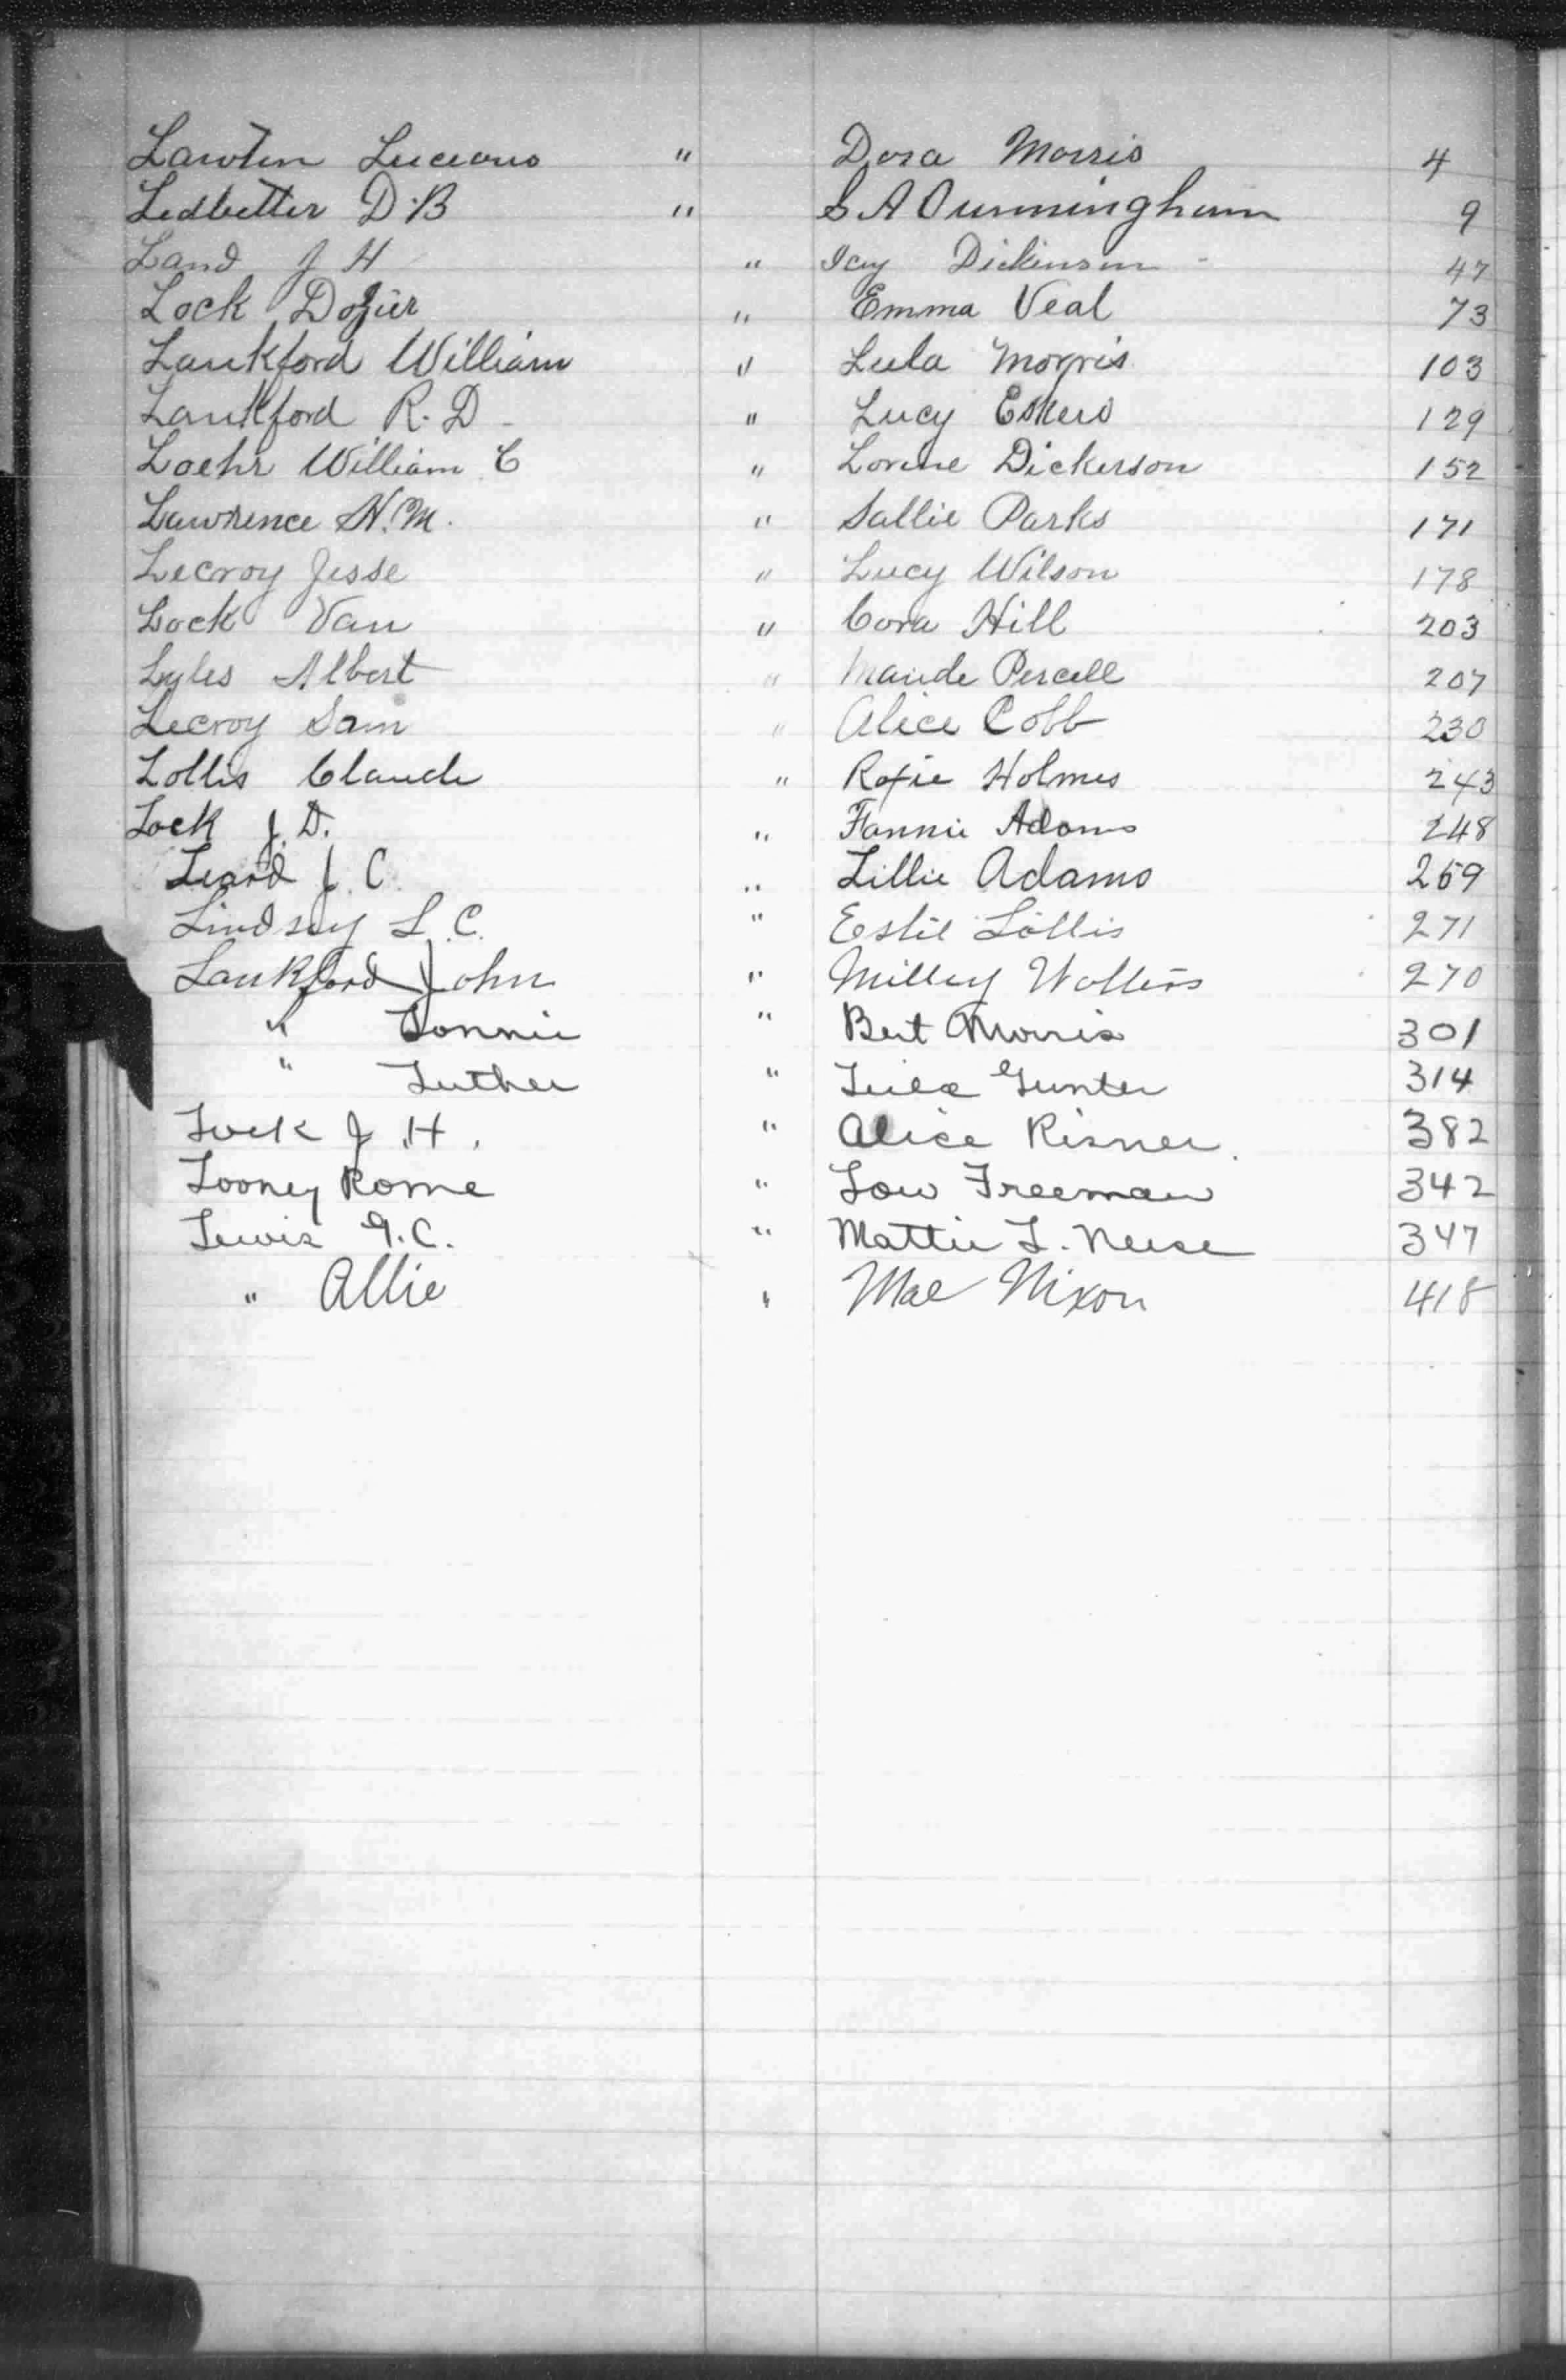 Lawten Luceous " Dora Morris 4
Ledbetter D.B " S A Cunningham 9
Land J H " Icy Dickinson 47
Lock Dozier " Emma Veal 73
Lankford William " Lula Morris 103
Lankford R. D " Lucy 129
Loehr William C " Lorene Dickerson 152
Lawrence H.M. " Sallie Parks 171
Lecroy Jesse " Lucy Wilson 178
Lock Van " Cora Hill 203
Lyles Albert " Maude Percell 207
Lecroy Sam " Alice Cobb 230
Lollis Claude " Roxie Holmes 243
Lock J. D. " Fannie Adams 248
Leard J. C. " Lillie Adams 259
Lindsey L. C. " Estie Lollis 271
Lankford John " Milley Wolters 270
" Lonnie " Bert Morris 301
" Luther " Lula Gunter 314
Lock J. H. " Alice Risner. 382
Looney Rome " Lou Freeman 342
Lewis G.C. " Mattie L. Neese 347
" Allie " Mae Nixon 418